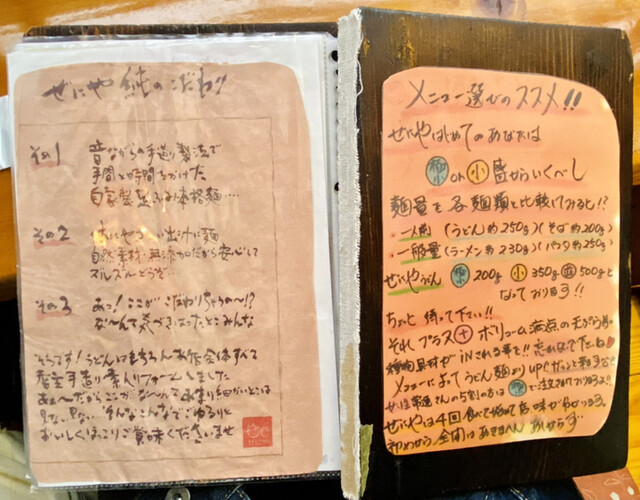 ぜにや 純のこだわり
その1 昔ながらの手造り製法で
手間と時間をかけた
自家製 本格麺・・・・
その2 出汁に麺
自然素材 無添加だから安心して
ズルズルどうぞ・・・
その3 あっ!ここがこだわりちゃうの〜!?
な〜んて気づきはったとこみんな
そうです!うどんはもちろんお店全体すべて
手造り素人リフォームしました
あぁ〜だからここがな〜んてあまり細かいとこは
見ない、見ない そんなこんなでごゆるりと
おいしくほっこりご賞味くださいませ
メニュー選びのススメ!!
ぜにやはじめてのあなたは
小 からいくべし
麺量を各麺類と比較してみると!?
一人前 (うどん 約250g)(そば 約200g)
一般量 (ラーメン 約230g)(パスタ 約250g)
ぜにやうどん 200g 小 350g 500gと
なっております!!
ちょっと待って下さい!!
それにプラス + ボリューム満点の天ぷら等、
具材がINされる事を!!忘れないで下さいね
メニューによってうどん麺よりUP
常連さんの5割の方は で注文されております
ぜにやは4回食べて始めて 味がわかります。
初めから全開はあきまへん